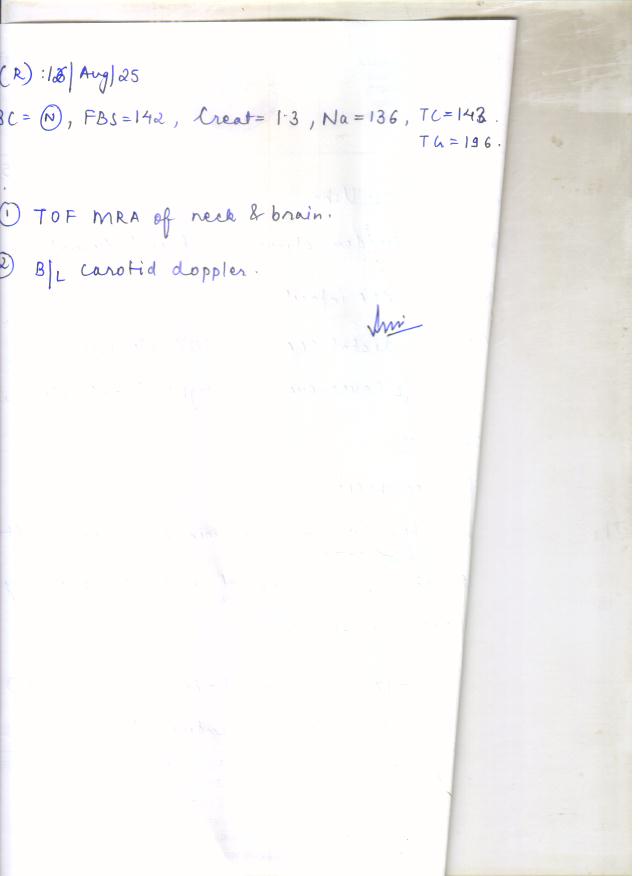 (R) : 16/Aug/25
BC = (N), FBS = 142, Creat = 1.3, Na = 136, TC = 143.
TG = 196.
① TOF MRA of neck & brain.
② B/L carotid doppler.